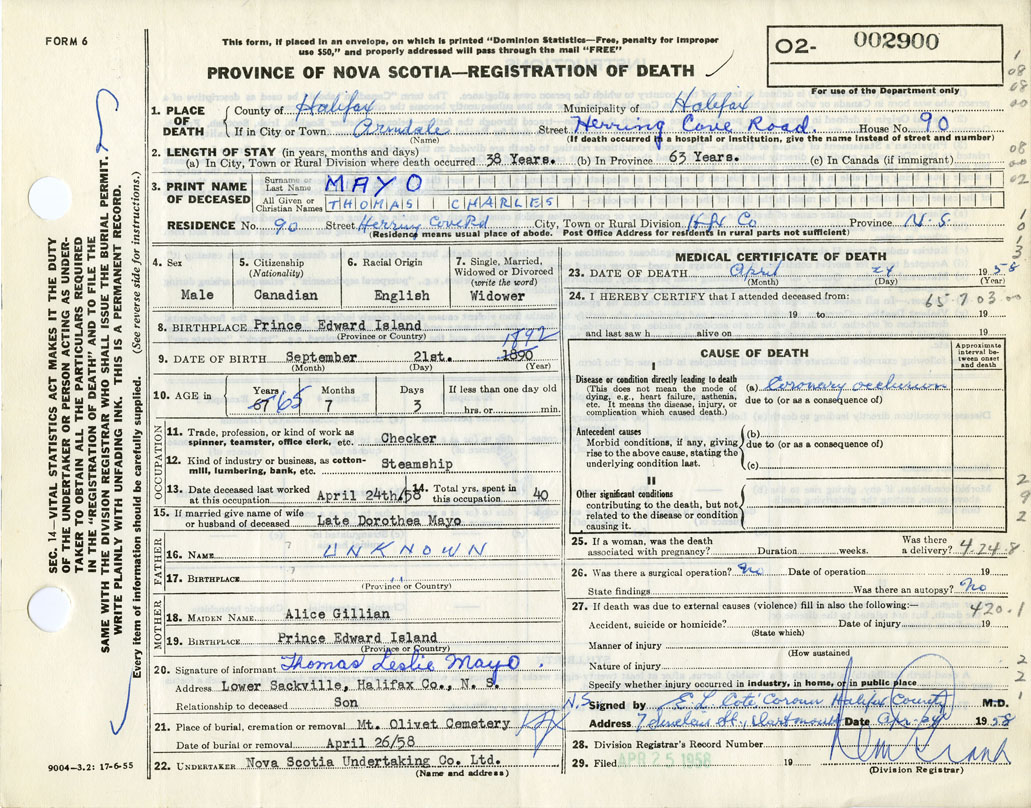 FORM 6
This form, if placed in an envelope, on which is printed "Dominion Statistics—Free, penalty for improper
use $50," and properly addressed will pass through the mail "FREE"
O2- 002900
For use of the Department only
PROVINCE OF NOVA SCOTIA—REGISTRATION OF DEATH
1. PLACE OF DEATH
County of Halifax Municipality of Halifax
If in City or Town Armdale Street Herring Cove Road House No. 90
(Name) (If death occurred in a hospital or institution, give the name instead of street and number)
2. LENGTH OF STAY (in years, months and days)
(a) In City, Town or Rural Division where death occurred 38 Years. (b) In Province 63 Years. (c) In Canada (if immigrant)
3. PRINT NAME OF DECEASED
Surname or Last Name MAYO
All Given or Christian Names THOMAS CHARLES
RESIDENCE No. 90 Street Herring Cove Rd City, Town or Rural Division Hfx Co Province N.S.
(Residence means usual place of abode. Post Office Address for residents in rural parts not sufficient)
4. Sex
Male
5. Citizenship
(Nationality)
Canadian
6. Racial Origin
English
7. Single, Married,
Widowed or Divorced
(write the word)
Widower
8. BIRTHPLACE Prince Edward Island
(Province or Country)
1892
9. DATE OF BIRTH September 21st. 1890
(Month) (Day) (Year)
10. AGE in
Years Months Days If less than one day old
67 65 7 3 hrs. or min.
OCCUPATION
11. Trade, profession, or kind of work as
spinner, teamster, office clerk, etc. Checker
12. Kind of industry or business, as cotton-
mill, lumbering, bank, etc. Steamship
13. Date deceased last worked
at this occupation April 24th/58
14. Total yrs. spent in
this occupation 40
15. If married give name of wife
or husband of deceased Late Dorothea Mayo
FATHER
16. NAME UNKNOWN
17. BIRTHPLACE "
(Province or Country)
MOTHER
18. MAIDEN NAME Alice Gillian
19. BIRTHPLACE Prince Edward Island
(Province or Country)
20. Signature of informant Thomas Leslie Mayo
Address Lower Sackville, Halifax Co., N. S.
Relationship to deceased Son
21. Place of burial, cremation or removal Mt. Olivet Cemetery Hfx
Date of burial or removal April 26/58
22. UNDERTAKER Nova Scotia Undertaking Co. Ltd.
(Name and address)
MEDICAL CERTIFICATE OF DEATH
23. DATE OF DEATH April 24 1958
(Month) (Day) (Year)
24. I HEREBY CERTIFY that I attended deceased from:
65 7 03 00
19 to 19
and last saw h alive on 19
CAUSE OF DEATH
Approximate
interval be-
tween onset
and death
I
Disease or condition directly leading to death
(This does not mean the mode of
dying, e.g., heart failure, asthenia,
etc. It means the disease, injury, or
complication which caused death.)
(a) Coronary occlusion
due to (or as a consequence of)
Antecedent causes
Morbid conditions, if any, giving
rise to the above cause, stating the
underlying condition last.
(b)
due to (or as a consequence of)
(c)
II
Other significant conditions
contributing to the death, but not
related to the disease or condition
causing it.
25. If a woman, was the death
associated with pregnancy? Duration weeks. Was there
a delivery? 4-24-8
26. Was there a surgical operation? No Date of operation 19
State findings Was there an autopsy? No
27. If death was due to external causes (violence) fill in also the following:—
420.1
Accident, suicide or homicide? Date of injury 19
(State which)
Manner of injury
(How sustained
Nature of injury
Specify whether injury occurred in industry, in home, or in public place
N.S. Signed by E L Cote Coroner Halifax County M.D.
Address Dartmouth Date Apr-24 1958
28. Division Registrar's Record Number
29. Filed APR 25 1958 19
(Division Registrar)
SEC. 14—VITAL STATISTICS ACT MAKES IT THE DUTY
OF THE UNDERTAKER OR PERSON ACTING AS UNDER-
TAKER TO OBTAIN ALL THE PARTICULARS REQUIRED
IN THE "REGISTRATION OF DEATH" AND TO FILE THE
SAME WITH THE DIVISION REGISTRAR WHO SHALL ISSUE THE BURIAL PERMIT.
WRITE PLAINLY WITH UNFADING INK. THIS IS A PERMANENT RECORD.
Every item of information should be carefully supplied. (See reverse side for instructions.)
9004-3.2: 17-6-55
1
08
08
00
08
00
02
1
0
1
3
2
9
2
2
2
1